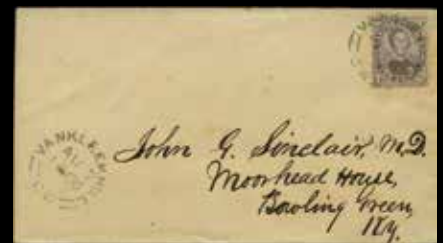 VANKLEEK HILL
John G. Sinclair, M.D.
Moorhead House,
Bowling Green,
Ky.